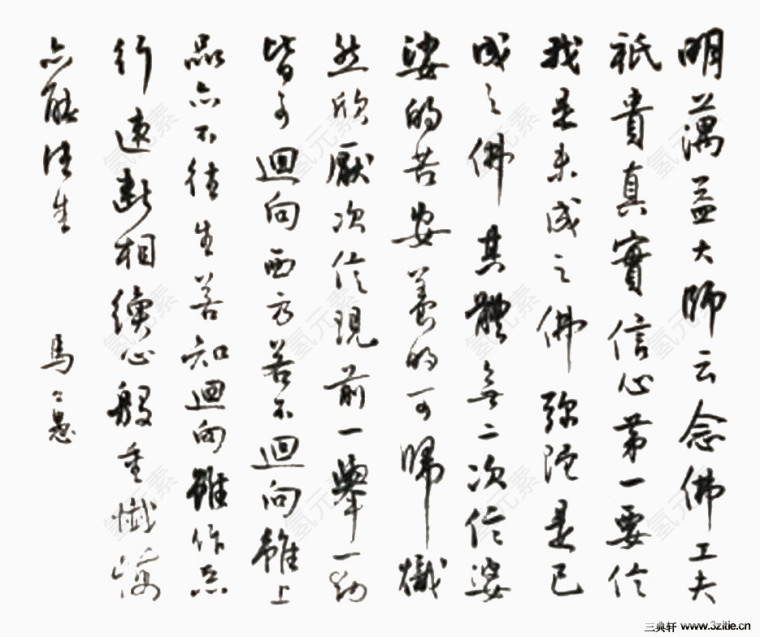 明蕅益大師云念佛工夫
祇貴真實信心第一要信
我是未成之佛彌陀是已
成之佛其體無二次信娑
婆的苦安養的可歸熾
然欣厭次信現前一舉一動
皆可迴向西方若不迴向雖上
品亦不往生若知迴向雖作惡
行速斷相續心殷重懺悔
亦能往生 馬公愚
三典轩 www.3zitie.cn
氢元素